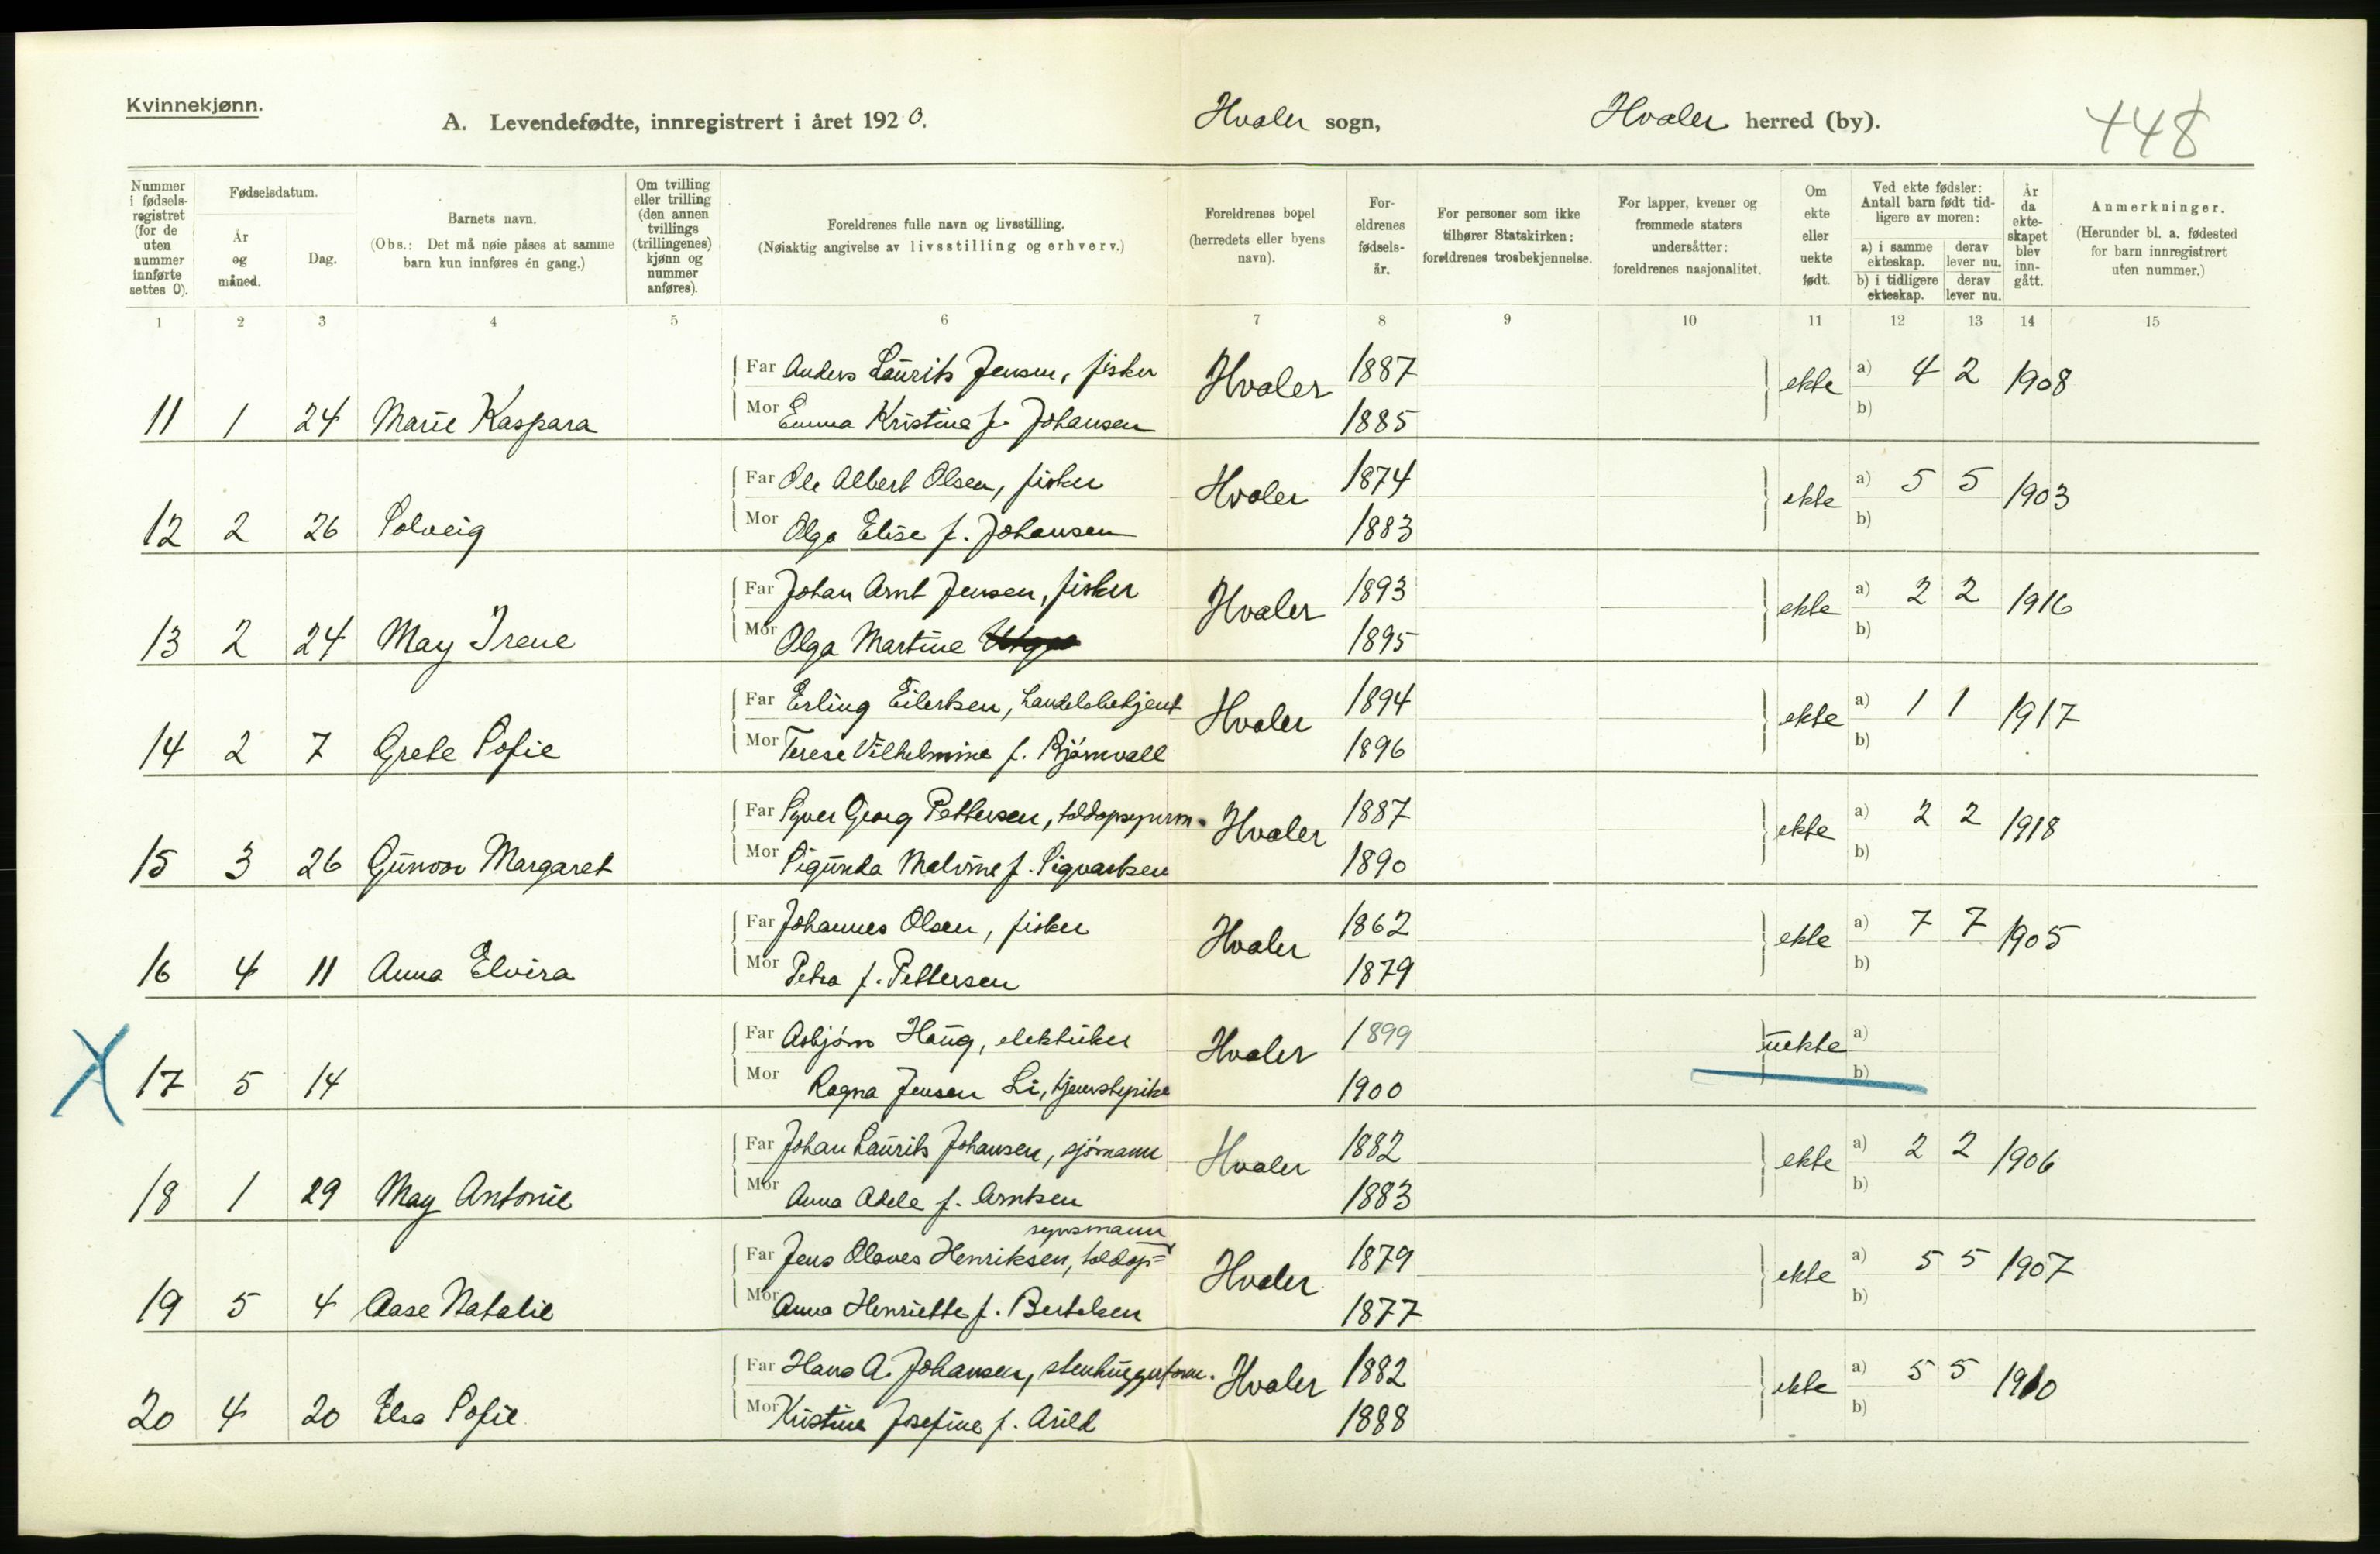 Kvinnekjønn.
A. Levendefødte, innregistrert i året 1920. Hvaler sogn, Hvaler herred (by). 448
Nummer i fødselsregistret (for de uten nummer innførte settes 0).
Fødselsdatum.
År og måned.
Dag.
Barnets navn.
(Obs.: Det må nøie påses at samme barn kun innføres én gang.)
Om tvilling eller trilling (den annen tvillings (trillingenes) kjønn og nummer anføres).
Foreldrenes fulle navn og livsstilling.
(Nøiaktig angivelse av livsstilling og erhverv.)
Foreldrenes bopel (herredets eller byens navn).
Foreldrenes fødselsår.
For personer som ikke tilhører Statskirken: foreldrenes trosbekjennelse.
For lapper, kvener og fremmede staters undersåtter: foreldrenes nasjonalitet.
Om ekte eller uekte født.
Ved ekte fødsler: Antall barn født tidligere av moren:
a) i samme ekteskap. derav lever nu.
b) i tidligere ekteskap. derav lever nu.
År da ekteskapet blev inngått.
Anmerkninger.
(Herunder bl. a. fødested for barn innregistrert uten nummer.)
1 2 3 4 5 6 7 8 9 10 11 12 13 14 15
Far Anders Laurits Jensen, fisker Hvaler 1887 ekte a) 4 2 1908
11 1 24 Marie Kaspara Mor Emma Kristine f. Johansen 1885 b)
Far Ole Albert Olsen, fisker Hvaler 1874 ekte a) 5 5 1903
12 2 26 Solveig Mor Olga Elise f. Johansen 1883 b)
Far Johan Arnt Jensen, fisker Hvaler 1893 ekte a) 2 2 1916
13 2 24 May Irene Mor Olga Martine 1895 b)
Far Erling Eilertsen, handelsbetjent Hvaler 1894 ekte a) 1 1 1917
14 2 7 Grete Sofie Mor Terese Vilhelmine f. Bjørnvall 1896 b)
Far Syver Georg Pettersen, toldopsynsm. Hvaler 1887 ekte a) 2 2 1918
15 3 26 Gunvor Margaret Mor Sigunda Malvine f. Sigvartsen 1890 b)
Far Johannes Olsen, fisker Hvaler 1862 ekte a) 7 7 1905
16 4 11 Anna Elvira Mor Petra f. Pettersen 1879 b)
Far Asbjørn Haug, elektriker Hvaler 1899 uekte a)
X 17 5 14 Mor Ragna Jensen Li, tjenestepike 1900 b)
Far Johan Laurits Johansen, sjømann Hvaler 1882 ekte a) 2 2 1906
18 1 29 May Antonie Mor Anna Adele f. Arntsen 1883 b)
synsmann
Far Jens Olaves Henriksen, toldop= Hvaler 1879 ekte a) 5 5 1907
19 5 4 Aase Natalie Mor Anna Henriette f. Bertelsen 1877 b)
Far Hans A. Johansen, stenhuggerform. Hvaler 1882 ekte a) 5 5 1910
20 4 20 Elsa Sofie Mor Kristine Josefine f. Arild 1888 b)